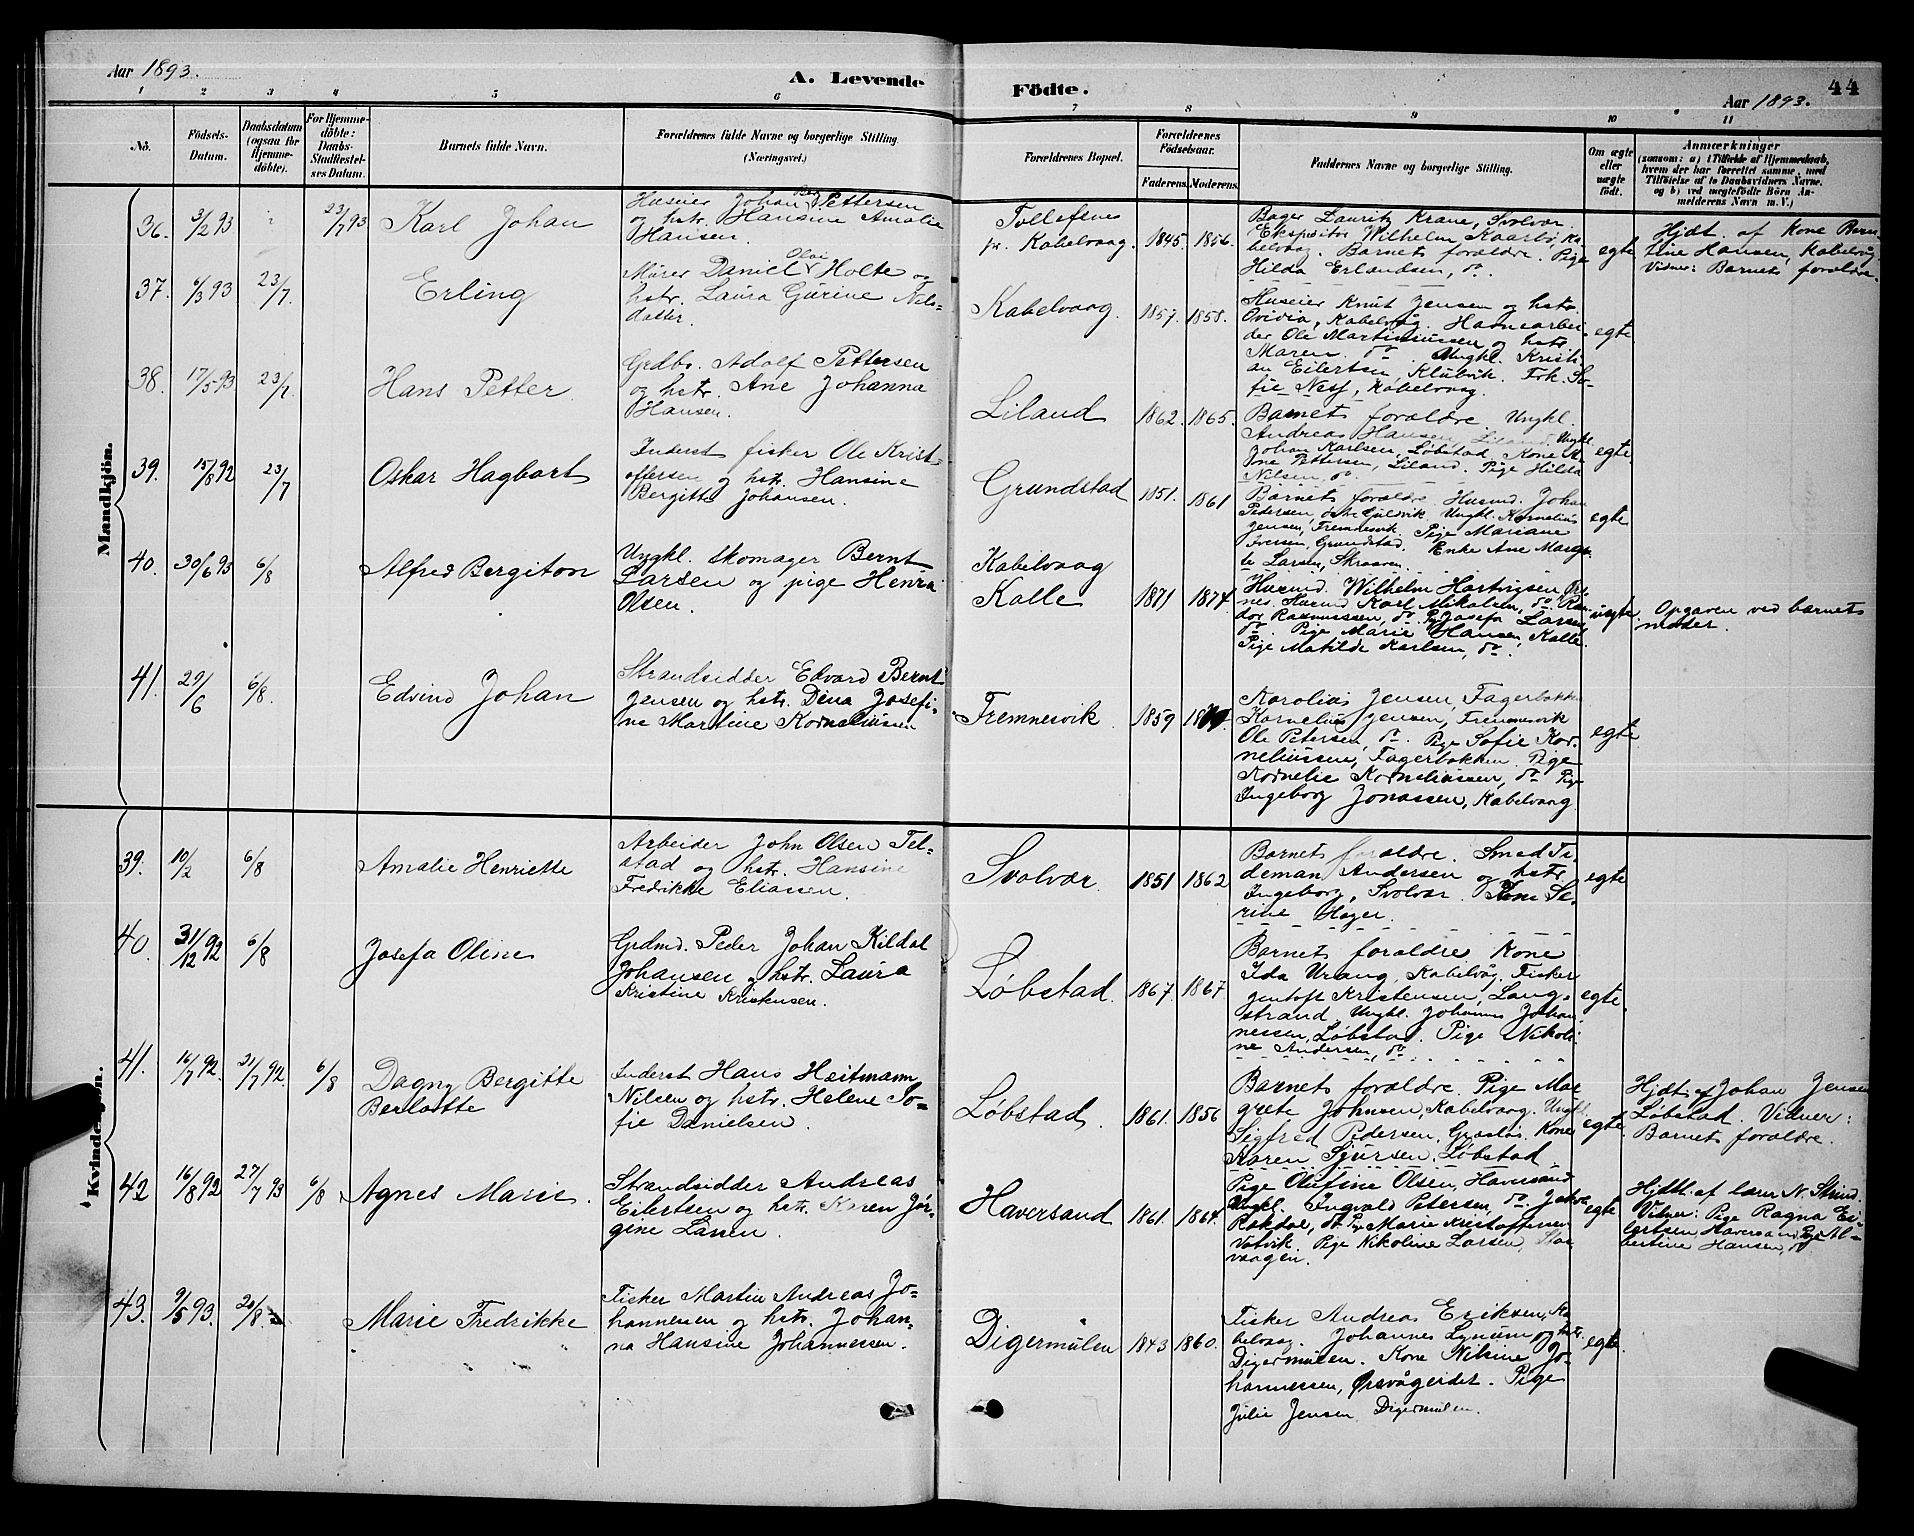 Aar 1893.
A. Levende Födte.
44
Aar 1893.
1 2 3 4 5 6 7 8 9 10 11
No.
Födsels-
Datum.
Daabsdatum
(ogsaa for
Hjemme-
döbte).
For Hjemme-
döbte:
Daabs-
Stadfæstel-
ses Datum.
Barnets fulde Navn.
Forældrenes fulde Navne og borgerlige Stilling.
(Næringsvei.)
Forældrenes Bopæl.
Forældrenes
Födselsaar.
Faderens. Moderens.
Faddernes Navne og borgerlige Stilling.
Om ægte
eller
uægte
födt.
Anmærkninger
(saasom: a) i Tilfælde af Hjemmedaab,
hvem der har forrettet samme, med
Tilföielse af to Daabsvidners Navne,
og b) ved uægtefödte Börn An-
melderens Navn m. V.)
Mandkjön.
36. 3/2 93 23/7 93 Karl Johan
Huseier Johan Pettersen
og hstr. Hansine Amalie
Hansen.
Tollefsnes
pr. Kabelvaag. 1845. 1856.
Bager Lauritz Krane, Svolvær.
Ekspeditør Wilhelm Kaarbø, Ka-
belvaag. Barnets forældre. Pige
Hilda Erlandsen, do.
egte
Hjdt. af kone Bern-
tine Hansen, Kabelvåg.
Vidner: Barnets forældre.
37. 6/3 93 23/7. Erling
Murer Daniel Olai Holte og
hstr. Laura Gurine Nils-
datter.
Kabelvaag. 1857. 1858.
Huseier Knut Jensen og hstr.
Ovidia, Kabelvåg. Havnearbei-
der Ole Martinussen og hstr.
Maren do. Ungkl. Kristi-
an Eilertsen, Klubvik. Frk. So-
fie Ness, Kabelvaag.
egte
38. 17/5 93 23/7 Hans Petter
Grdbr. Adolf Pettersen
og hstr. Ane Johanna
Hansen.
Liland 1862. 1865.
Barnets forældre Ungkl.
Andreas Hansen, Liland. Ungkl.
Johan Karlsen, Løbstad. Kone
Pettersen, Liland. Pige Hilda
Nilsen, do.
egte.
39. 15/8 92 23/7 Oskar Hagbart
Inderst fisker Ole Krist-
offersen og hstr. Hansine
Bergitte Johansen.
Grundstad 1851. 1861
Barnets forældre Husmd. Johan
Pedersen, Guldvik. Ungkl. Kornelius
Jensen, Fremnesvik. Pige Mariane
Iversen, Grundstad. Enke Ane Margre-
te Larsen, Skraaven.
egte
40. 30/6 93 6/8 Alfred Bergiton
Ungkl. skomager Bernt
Larsen og pige Henra
Olsen.
Kabelvaag
Kalle 1871 1874
Husmd. Wilhelm Hartvigsen Ør-
nes. Husmd Karl Mikalsen, do.
Rasmussen, do. Pg. Josefa Larsen,
do. Pige Marie Hansen, Kalle.
Pige Matilde Karlsen, do.
uegte
Opgaven ved barnets
moder.
41. 29/6 6/8. Edvind Johan
Strandsidder Edvard Bernt
Jensen og hstr. Dina Josefi-
ne Martine Korneliussen
Fremnesvik 1859
Karolius Jensen, Fagerbakken
Kornelius Jensen, Fremnesvik
Ole Petersen, do. Pige Sofie Kor-
neliussen, Fagerbakken. Pige
Kornelie Korneliussen, do. Pige
Ingeborg Jonassen, Kabelvaag
egte
Kvindekjön.
39. 10/2 6/8 Amalie Henriette
Arbeider John Olsen Tel-
stad og hstr. Hansine
Fredrikke Eliassen.
Svolvær. 1851 1862
Barnets forældre. Smed Ti-
deman Andersen og hstr.
Ingeborg, Svolvær. Se-
rine Høyer.
egte
40. 31/12 92 6/8 Josefa Oline
Grdmd. Peder Johan Kildal
Johansen og hstr. Laura
Kristine Kristensen.
Løbstad. 1867. 1867
Barnets forældre Kone
Ida Urang, Kabelvåg. Fisker
Gentoft Kristensen, Lang-
strand. Ungkl. Johannes Johan-
nessen, Løbstad. Pige Nikoli-
ne Andersen, do.
egte.
41. 16/7 92. 21/7 92. 6/8 Dagny Bergitte
Berlotte
Inderst Hans Heitmann
Nilsen og hstr. Helene So-
fie Danielsen.
Løbstad. 1861. 1856
Barnets forældre. Pige Mar-
grete Johnsen, Kabelvaag. Ungkl.
Sigfred Pedersen, Kone
Karen Sjursen, Løbstad.
egte.
Hjdt. af Johan Jensen
Løbstad. Vidner:
Barnets forældre.
42 16/8 92 27/7 93 6/8 Agnes Marie.
Strandsidder Andreas
Eilertsen og hstr. Karen Jør-
gine Larsen.
Haversand 1861. 1864.
Pige Olufine Olsen, Haversand
Ungkl. Ingvald Petersen, do.
Rakdal, do. Pg. Marie Kristoffersen
Votvik. Pige Nikoline Larsen, Stor-
vaagen.
egte
Hjdt. af lærer N. Strind.
Vidner: Pige Ragna Ei-
lertsen, Haversand, Pige Al-
bertine Hansen, do
43. 9/5 93. 20/8 Marie Fredrikke
Fisker Martin Andreas Jo-
hannessen og hstr. Johan-
na Hansine Johannessen.
Digermulen 1843 1860.
Fisker Andreas Eriksen, Ka-
belvaag. Johannes Lynum og hstr.
Digermulen. Kone Nilsine Jo-
hannessen, Ørsvågeidet. Pige
Julie Jensen Digermulen.
egte